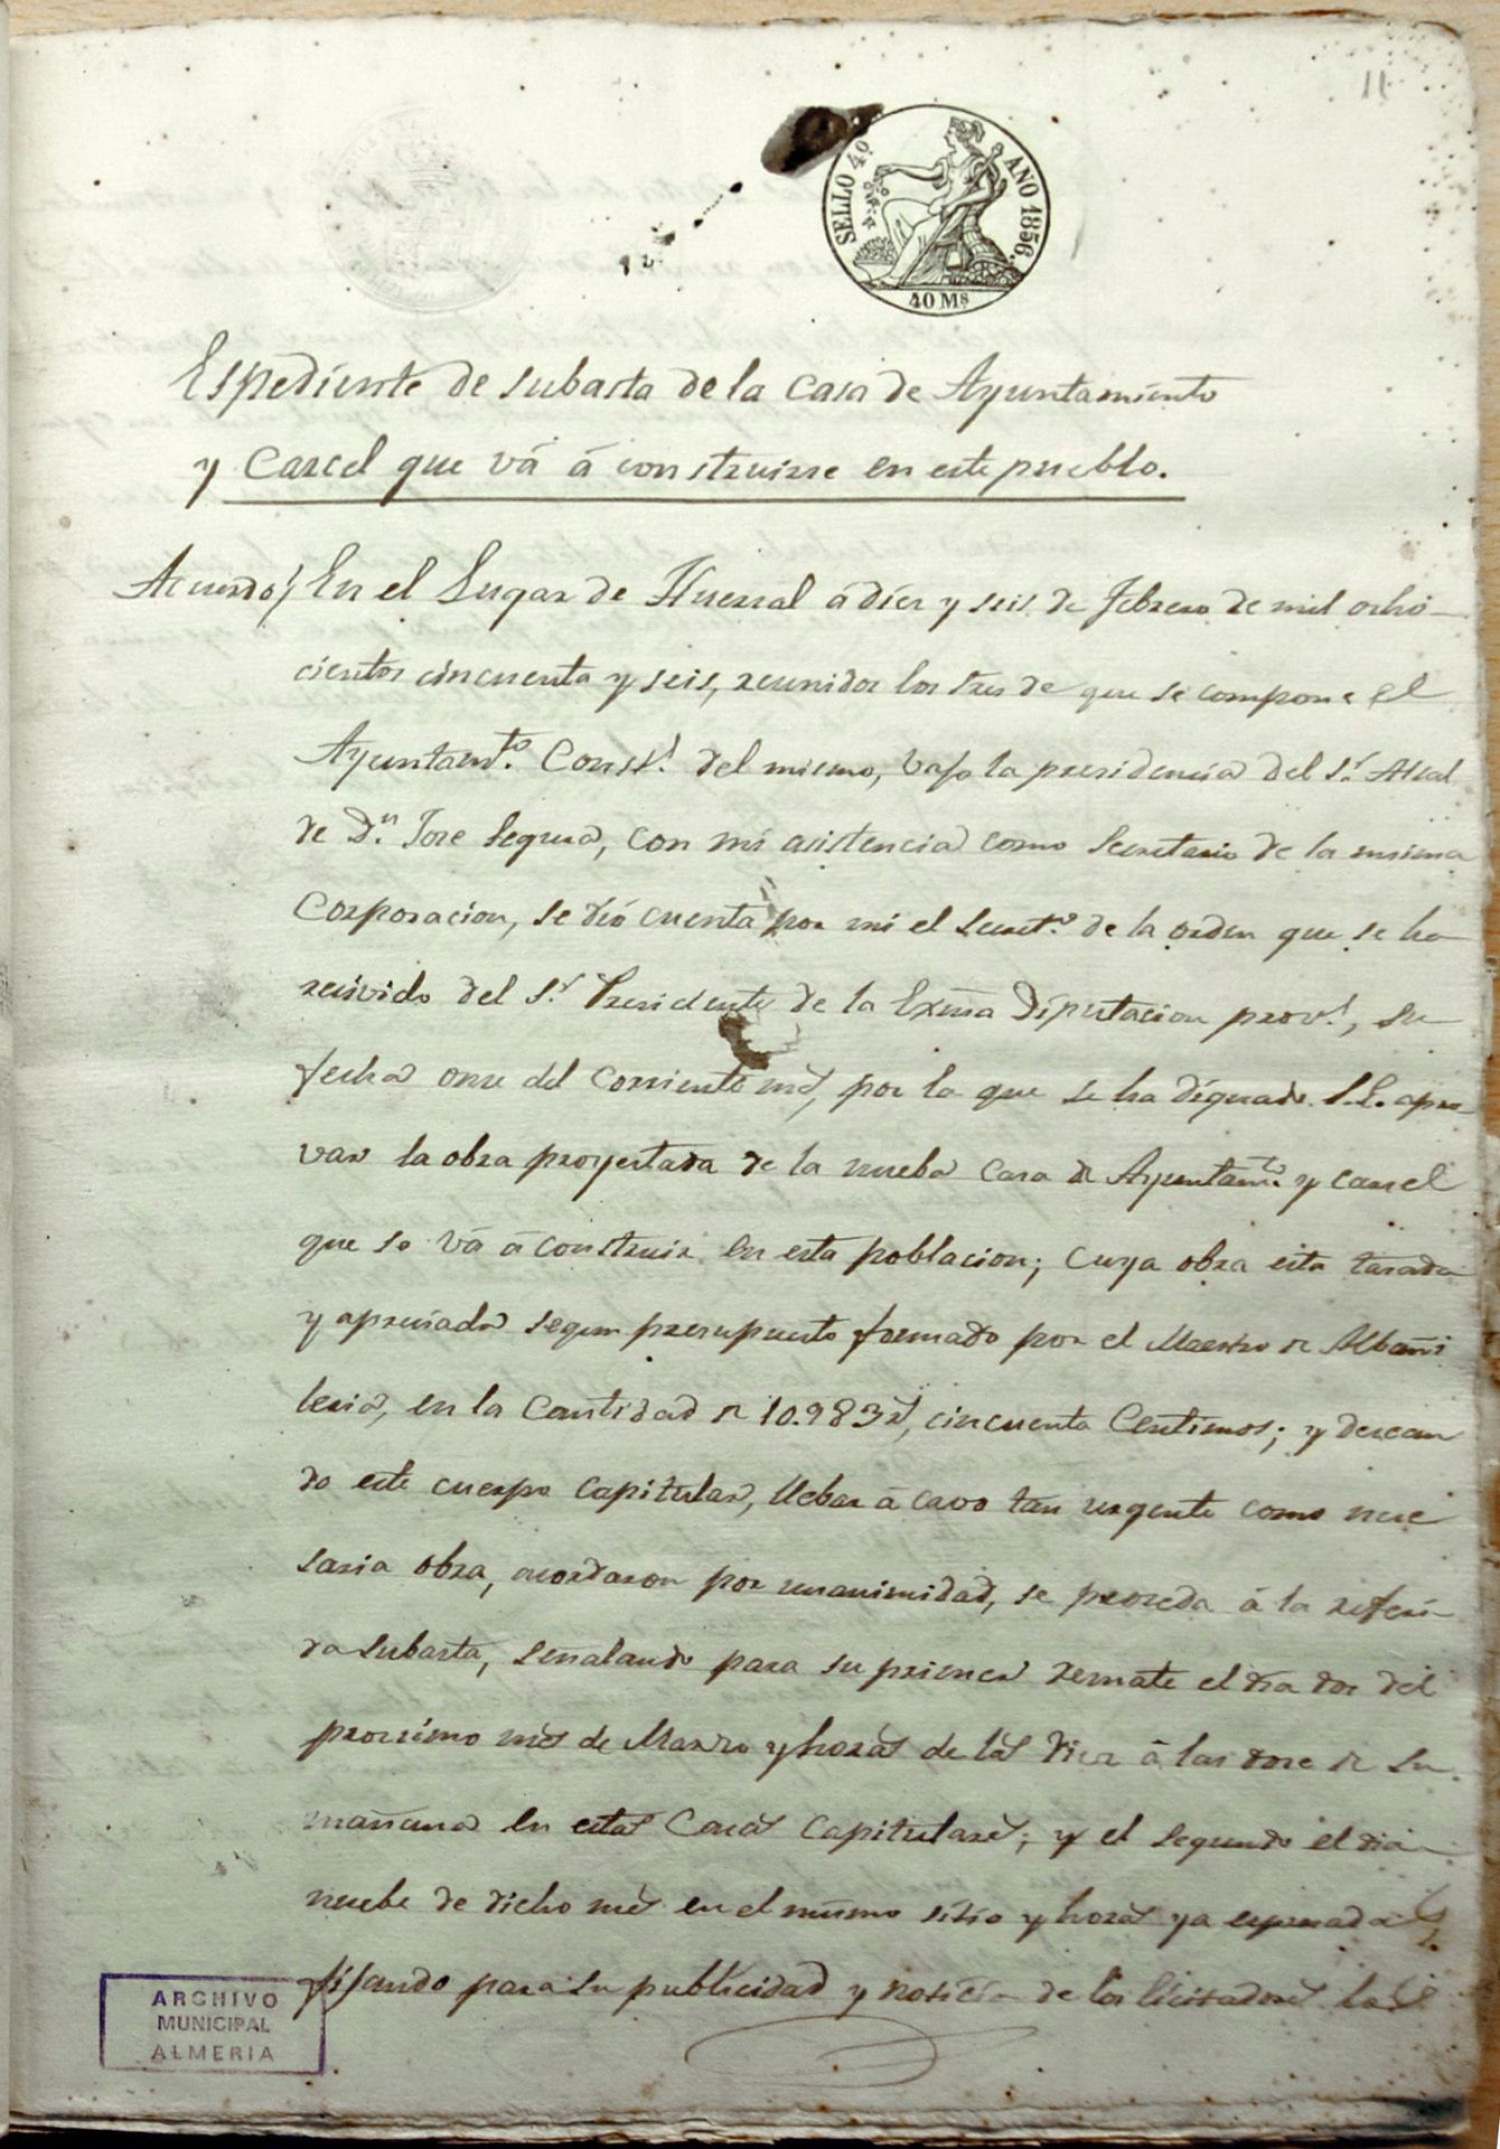 11
SELLO 4º AÑO 1856.
40 Ms
Espediente de subasta de la Casa de Ayuntamiento
y Carcel que vá á construirse en este pueblo.
Acuerdo/ En el Lugar de Huercal á diez y seis de Febrero de mil ocho-
cientos cincuenta y seis, reunidos los tres de que se compone el
Ayuntamto. Constl. del mismo, vajo la presidencia del Sr. Alcal
de Dn. Jose Segura, con mi asistencia como Secretario de la misma
Corporacion, se dió cuenta por mi el Secreto. de la orden que se ha
recivido del Sr. Presidente de la Exma Diputacion provl., su
fecha onse del corriente mes, por la que se ha dignado S.E. apro-
var la obra proyectada de la nueba casa de Ayuntamto. y carcel
que se vá á construir en esta poblacion; cuya obra esta tasada
y apreciada segun presupuesto formado por el Maestro de Albañi
leria, en la cantidad de 10.983 rs, cincuenta Centimos; y desean
do este cuerpo capitular, llebar á cavo tan urgente como nece
saria obra, acordaron por unanimidad, se proceda á la referi-
da subasta, señalando para su primer remate el dia dos del
procsimo mes de Marzo y horas de las diez á las dose de su
mañana en estas Casas Capitulares; y el segundo el dia
nuebe de dicho mes en el mismo sitio y horas ya espresadas
fijando para su publicidad y noticia de los licitadores los
ARCHIVO
MUNICIPAL
ALMERIA